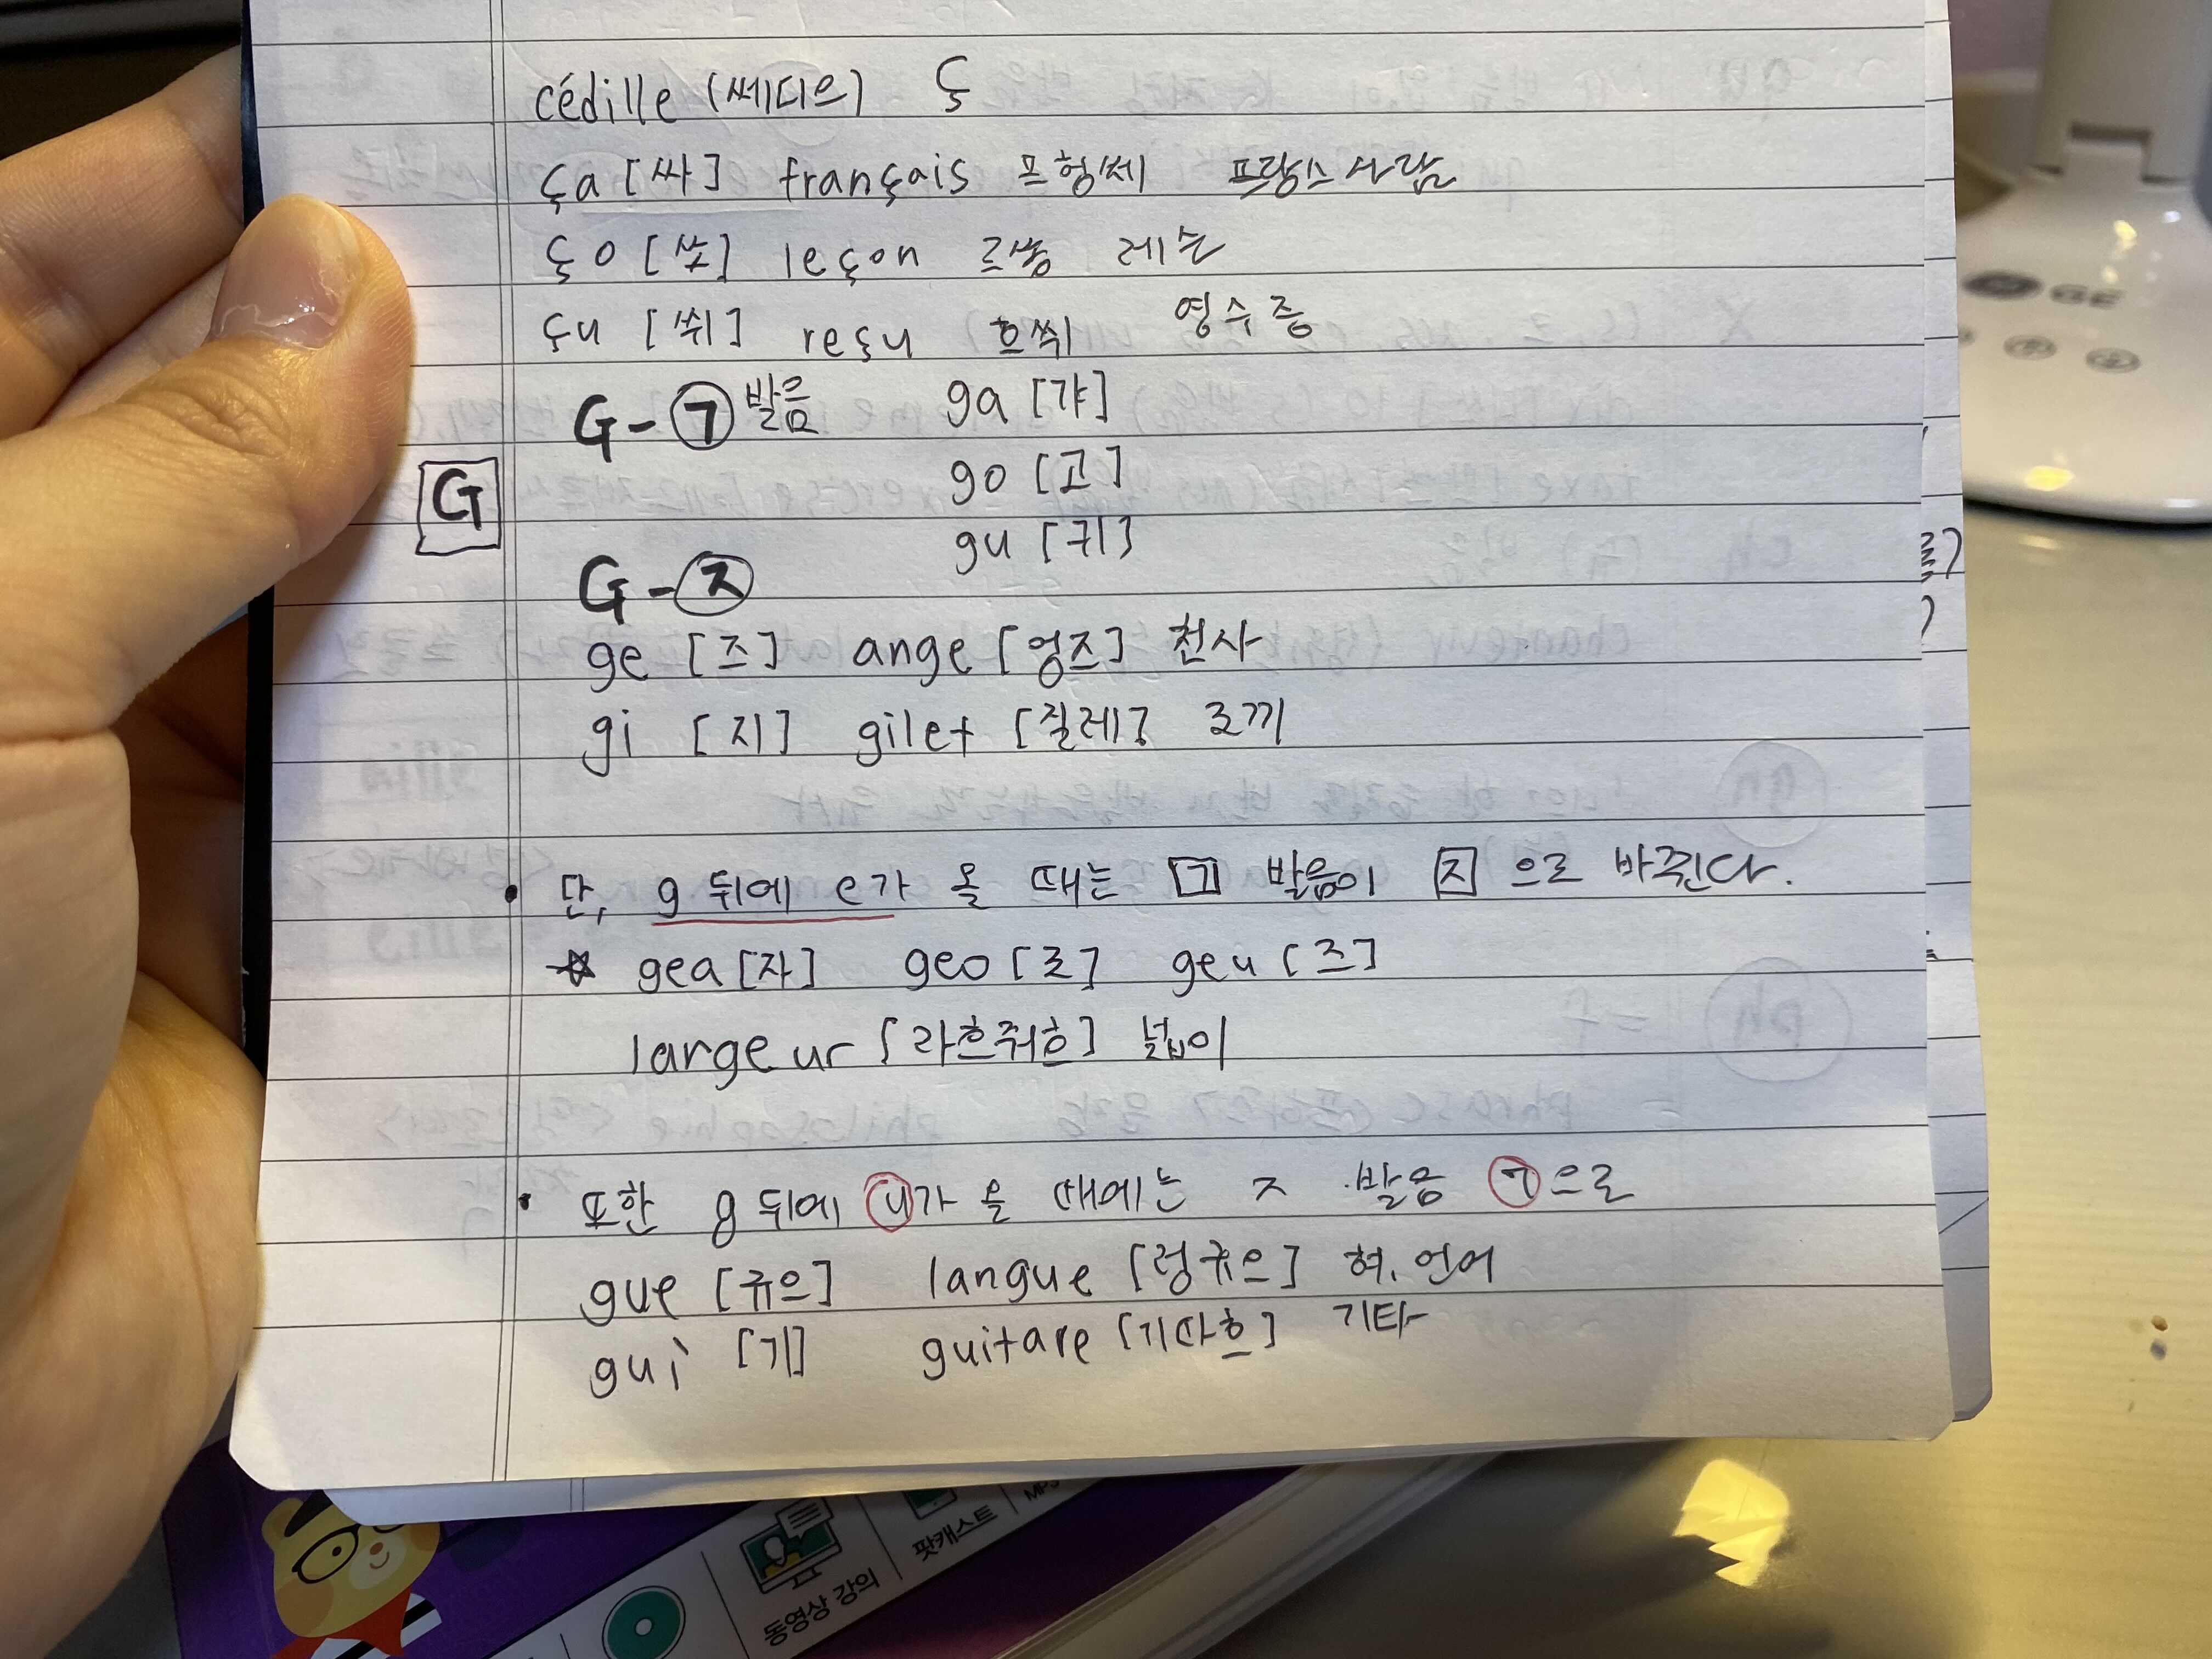 cédille (쎄디으) ç
ça [싸] français 프헝쎄 프랑스사람
ço [쏘] leçon 르쏭 레슨
çu [쒸] reçu 흐쒸 영수증
G-ㄱ 발음 ga [갸]
go [고]
G
gu [귀]
G-ㅈ
ge [즈] ange [엉즈] 천사
gi [지] gilet [질레] 조끼
• 단, g 뒤에 e가 올 때는 ㄱ 발음이 ㅈ으로 바뀐다.
☆ gea [자] geo [조] geu [즈]
largeur [라흐줘흐] 넓이
• 또한 g 뒤에 u가 올 때에는 ㅈ 발음 ㄱ으로
gue [귀으] langue [렁귀으] 혀, 언어
gui [기] guitare [기따흐] 기타
GE
동영상 강의
팟캐스트
MP3